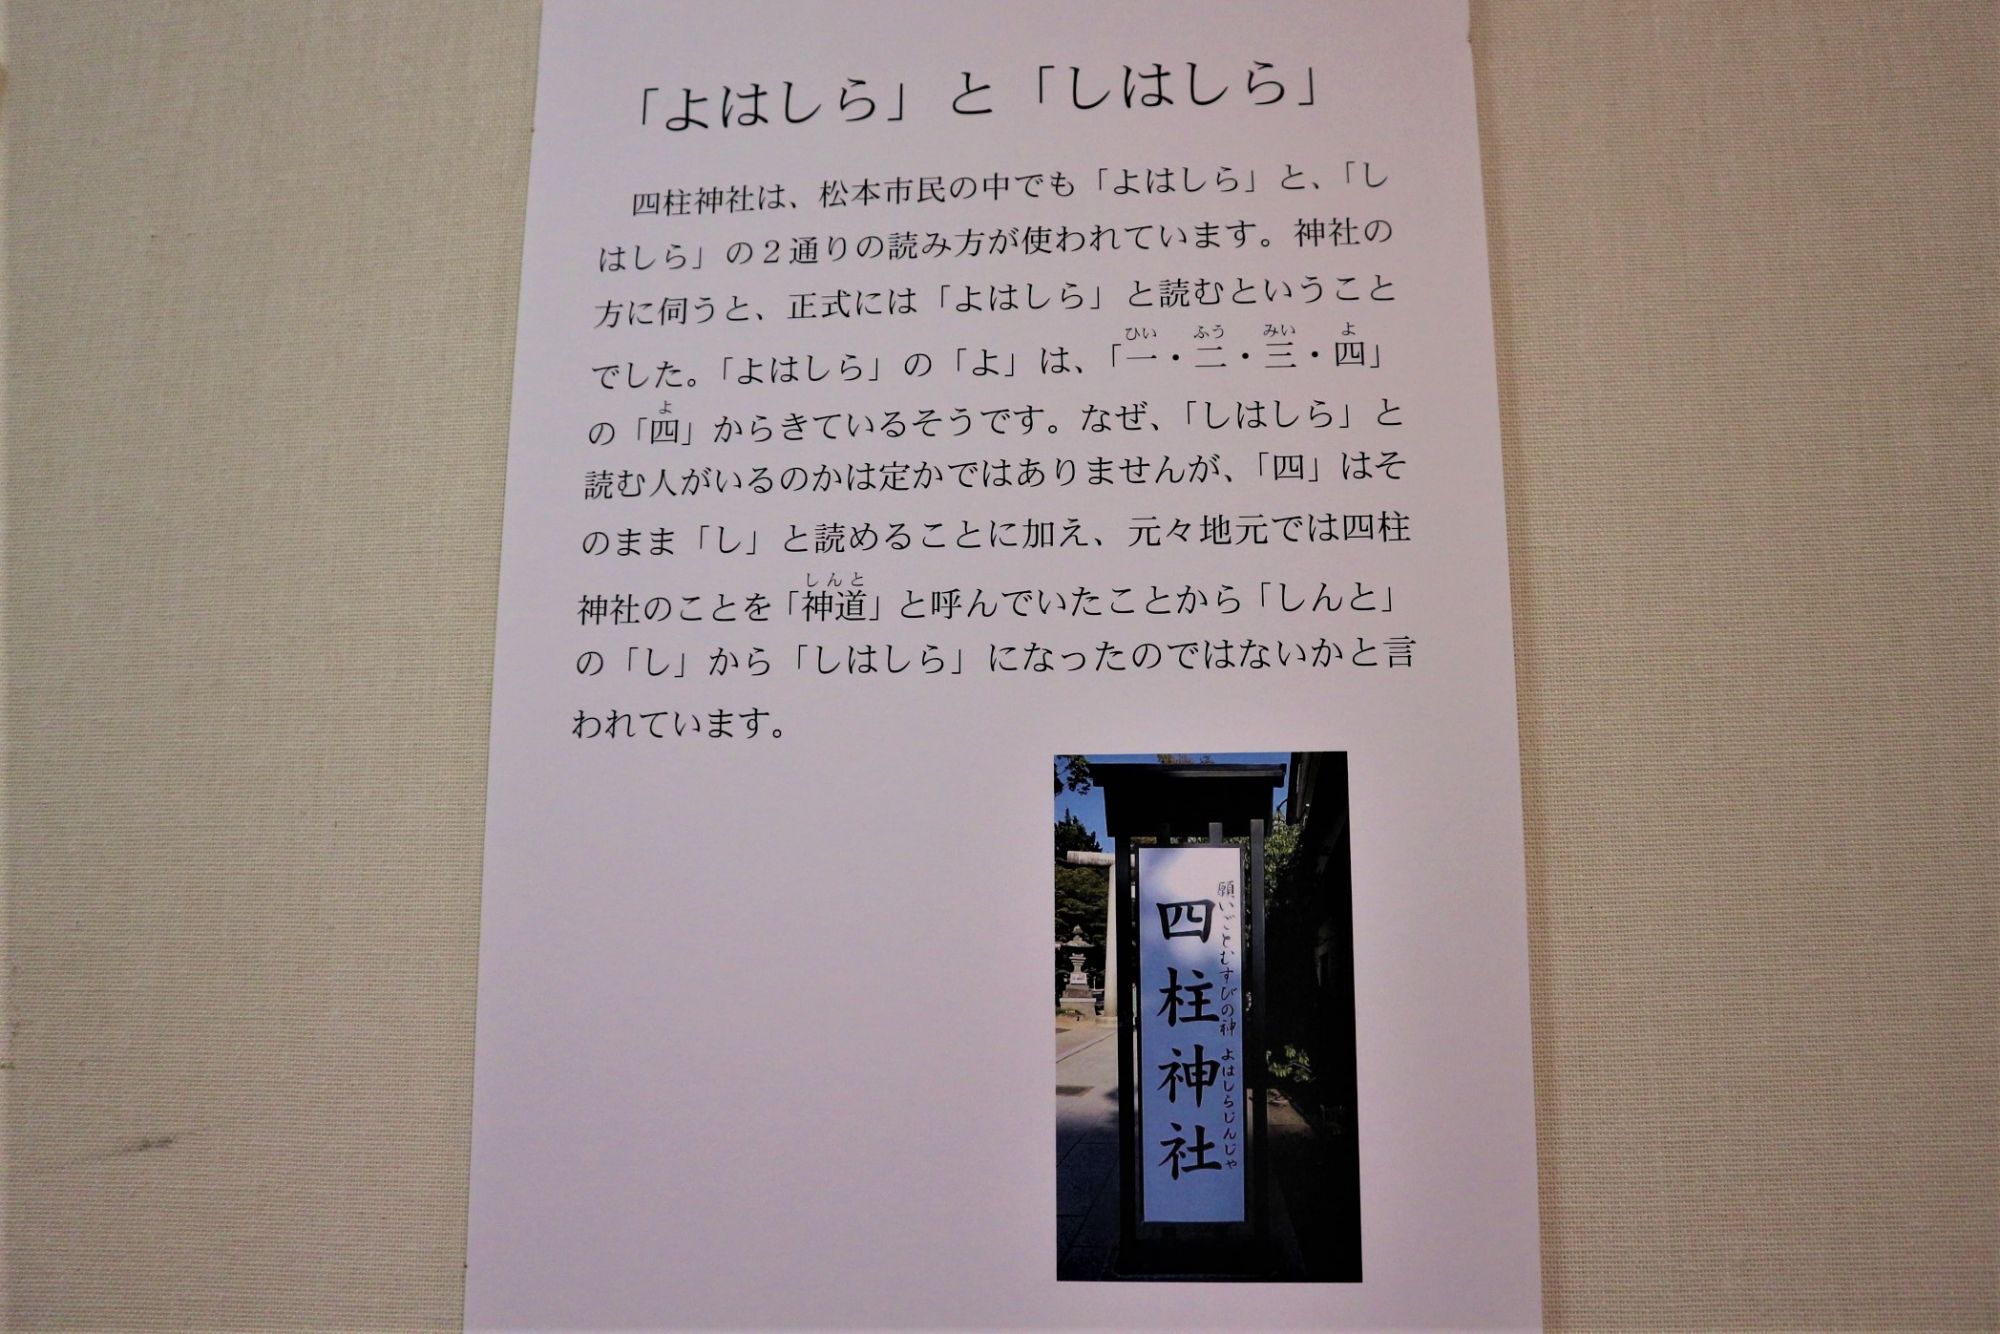 「よはしら」と「しはしら」
四柱神社は、松本市民の中でも「よはしら」と、「し
はしら」の２通りの読み方が使われています。神社の
方に伺うと、正式には「よはしら」と読むということ
ひい ふう みい よ
でした。「よはしら」の「よ」は、「一・二・三・四」
よ
の「四」からきているそうです。なぜ、「しはしら」と
読む人がいるのかは定かではありませんが、「四」はそ
のまま「し」と読めることに加え、元々地元では四柱
しんと
神社のことを「神道」と呼んでいたことから「しんと」
の「し」から「しはしら」になったのではないかと言
われています。
願いごとむすびの神 よはしらじんじゃ
四柱神社